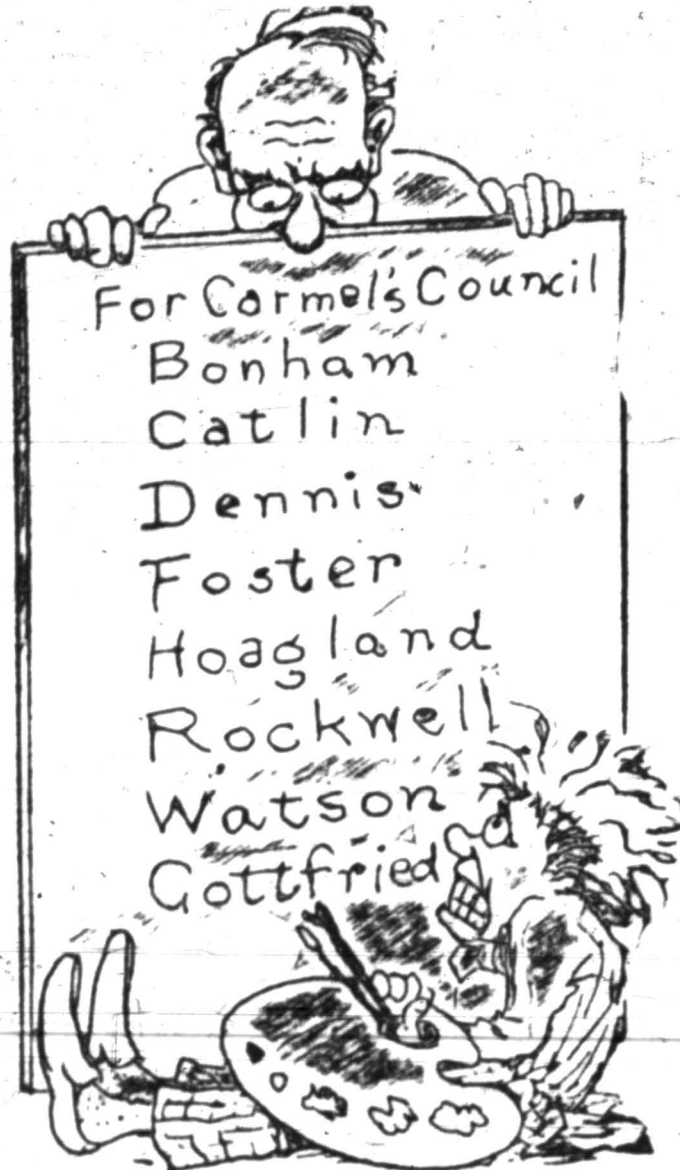 For Carmel's Council
Bonham
Catlin
Dennis
Foster
Hoagland
Rockwell
Watson
Gottfried